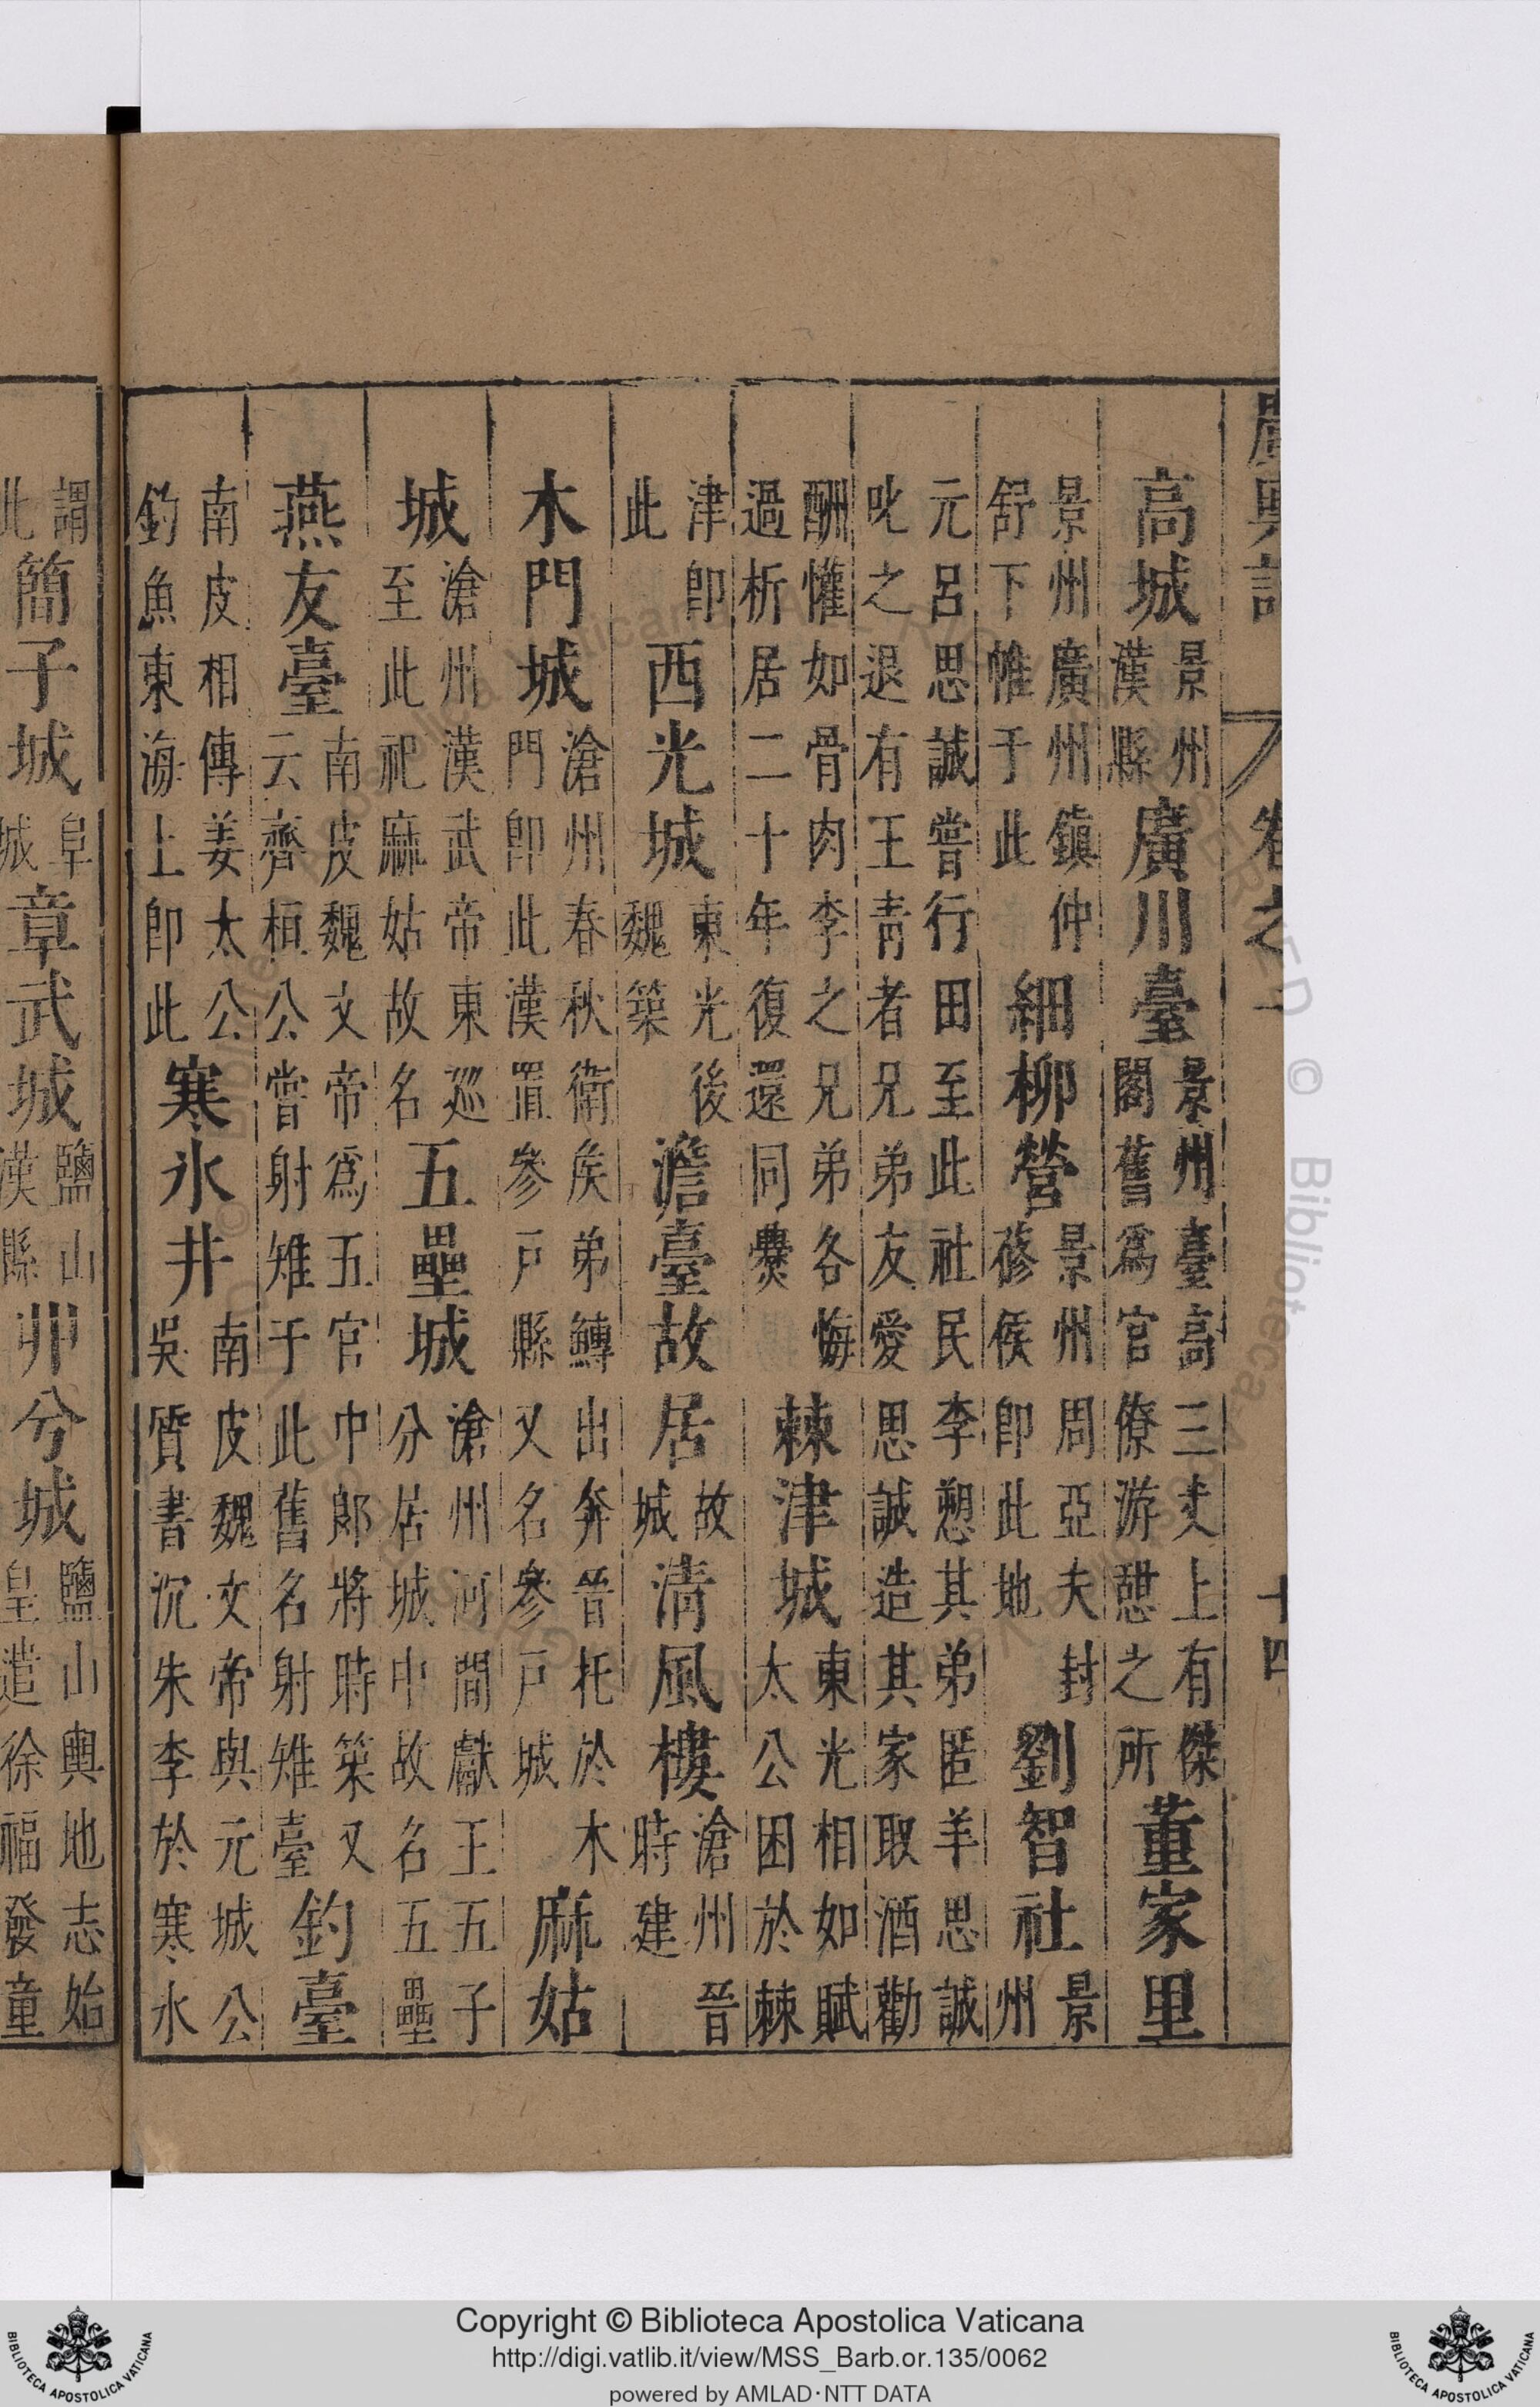 廣輿記 卷之一 十四
高城景州漢縣廣川臺景州臺高三丈上有傑閣舊爲官僚游憇之所董家里
景州廣州鎮仲舒下帷于此細柳營景州周亞夫封蓚侯即此地劉智社景州
元呂思誠嘗行田至此社民李愬其弟匿羊思誠叱之退有王青者兄弟友愛思誠造其家取酒勸
酬懽如骨肉李之兄弟各悔過析居二十年復還同爨棘津城東光相如賦太公困於棘
津即此西光城東光後魏築澹臺故居故城清風樓滄州晉時建
木門城滄州春秋衛矦弟鱄出奔晉托於木門即此漢置參戶縣又名參戶城麻姑
城滄州漢武帝東巡至此祀麻姑故名五壘城滄州河間獻王五子分居城中故名五壘
燕友臺南皮魏文帝爲五官中郎將時築又云齊桓公嘗射雉于此舊名射雉臺釣臺
南皮相傳姜太公釣魚東海上即此寒氷井南皮魏文帝與元城公吳質書沉朱李於寒水
謂此簡子城阜城章武城鹽山漢縣丱兮城鹽山輿地志始皇遣徐福發童
Copyright © Biblioteca Apostolica Vaticana
http://digi.vatlib.it/view/MSS_Barb.or.135/0062
powered by AMLAD·NTT DATA